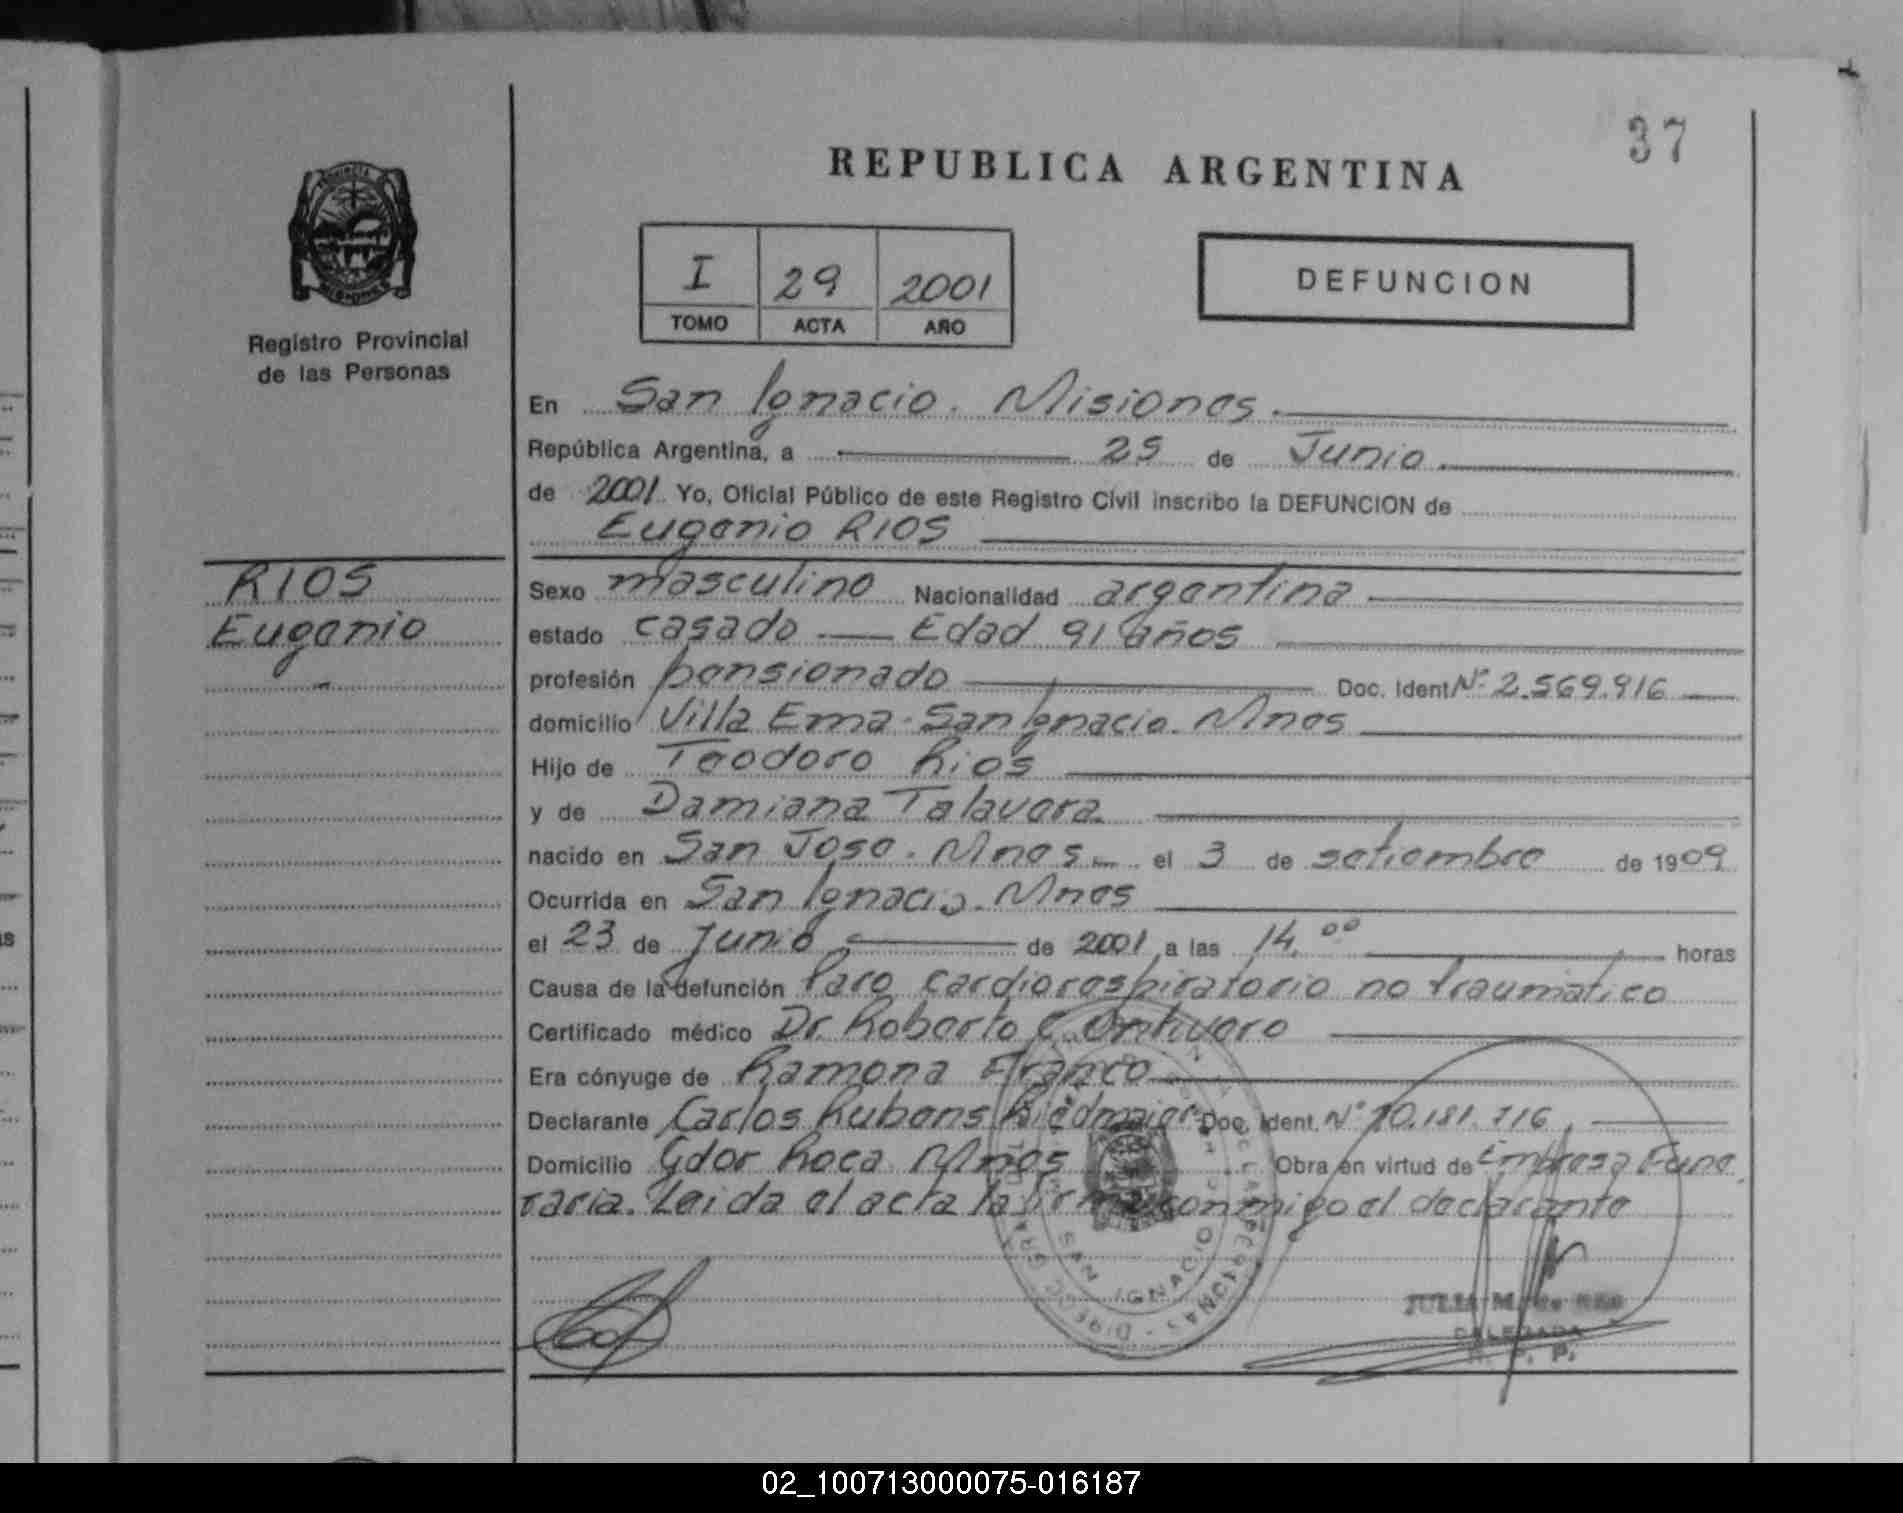 37
REPUBLICA ARGENTINA
PROVINCIA
MISIONES
Registro Provincial
de las Personas
I 29 2001
TOMO ACTA AÑO
DEFUNCION
En San Ignacio. Misiones.
República Argentina, a 25 de Junio
de 2001 Yo, Oficial Público de este Registro Civil inscribo la DEFUNCION de
Eugenio RIOS
RIOS
Eugenio
Sexo masculino Nacionalidad argentina
estado casado — Edad 91 años
profesión pensionado Doc. Ident Nº 2.569.916
domicilio Villa Ema - San Ignacio. Mnes
Hijo de Teodoro Rios
y de Damiana Talavera
nacido en San Jose. Mnes el 3 de setiembre de 1909
Ocurrida en San Ignacio. Mnes
el 23 de Junio de 2001 a las 14.00 horas
Causa de la defunción Paro cardiorespiratorio no traumatico
Certificado médico Dr. Roberto C. Ontivero
Era cónyuge de Ramona Franco
Declarante Carlos Rubens Riedmaier Doc. Ident. Nº 10.181.716
Domicilio Gdor Roca Mnes Obra en virtud de Empresa Fune
raria. Leida el acta la firma conmigo el declarante
SAN IGNACIO
JULIA M. de
DELEGADA
R. P. P.
02_100713000075-016187